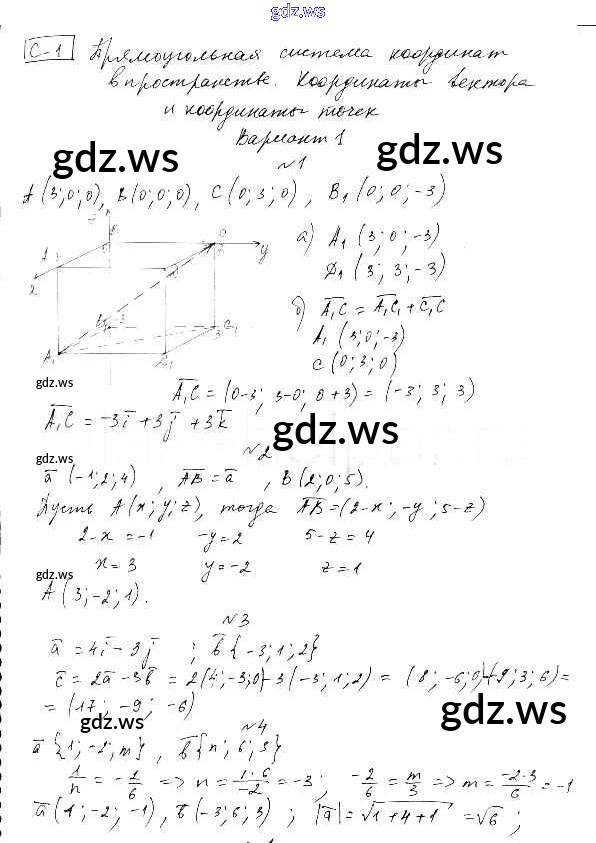 gdz.ws
С-1 Прямоугольная система координат
в пространстве. Координаты вектора
и координаты точек
Вариант 1
gdz.ws gdz.ws
№1
A(3;0;0), B(0;0;0), C(0;3;0), B₁(0;0;-3)
а) A₁(3;0;-3)
D₁(3;3;-3)
б) A₁C = A₁C₁ + C₁C
A₁(3;0;-3)
C(0;3;0)
x y A₁ C₁
gdz.ws
A₁C = (0-3; 3-0; 0+3) = (-3; 3; 3)
A₁C = -3i + 3j + 3k
gdz.ws
№2
gdz.ws
a(-1;2;4), AB = a, B(2;0;5).
Пусть A(x;y;z), тогда AB=(2-x;-y;5-z)
2-x=-1 -y=2 5-z=4
gdz.ws
x=3 y=-2 z=1
A(3;-2;1).
№3
a = 4i - 3j ; b{-3;1;2}
c = 2a - 3b = 2(4;-3;0)-3(-3;1;2) = (8;-6;0)-(-9;3;6)=
= (17; -9; -6)
gdz.ws gdz.ws
№4
a{1;-2;m}, b{n;6;3}
1/n = -2/6 => n = 1·6/-2 = -3; -2/6 = m/3 => m = -2·3/6 = -1
a(1;-2;-1), b(-3;6;3); |a| = √1+4+1 = √6;